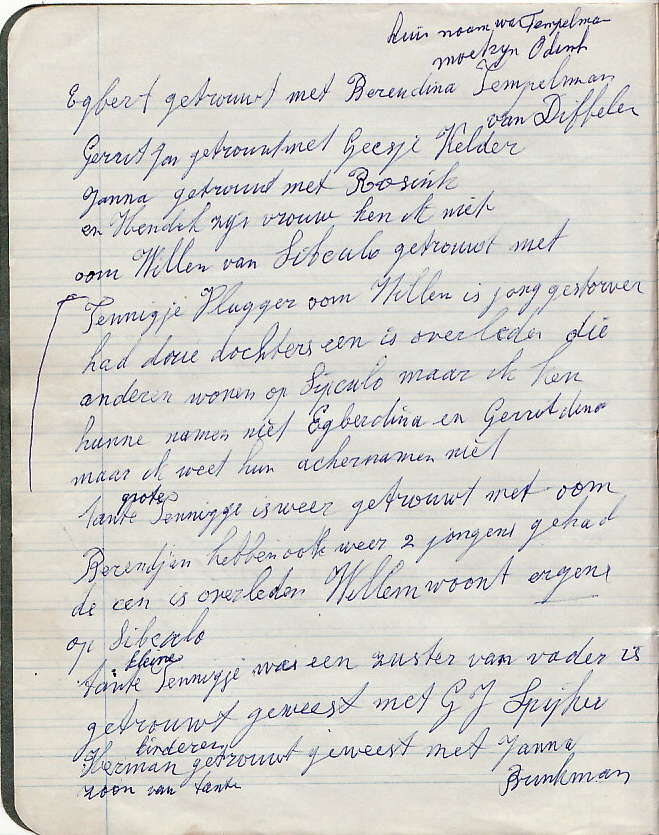 naam was Tempelman
moet zijn
Egbert getrouwt met Berendina Tempelman
van Diffelen
Gerrit Jan getrouwt met Geesje Kelder
Janna getrouwt met Rosink
en Hendek zijn vrouw ken ik niet
oom Willen van Sibculo getrouwt met
Tennigje Plagger oom Willen is jong gestorven
had drie dochters een is overleden die
anderen wonen op Sipculo maar ik ken
hunne namen niet Egberdina en Gerritdina
maar ik weet hun achernamen niet
grote
tante Tennigje is weer getrouwt met oom
Berendjan hebben ook weer 2 jongens gehad
de een is overleden Willem woont ergens
op Sibculo
kleine
tante Tennigje was een zuster van vader is
getrouwt geweest met G J Spijker
kinderen
Herman getrouwt geweest met Janna
zoon van tante
Brinkman